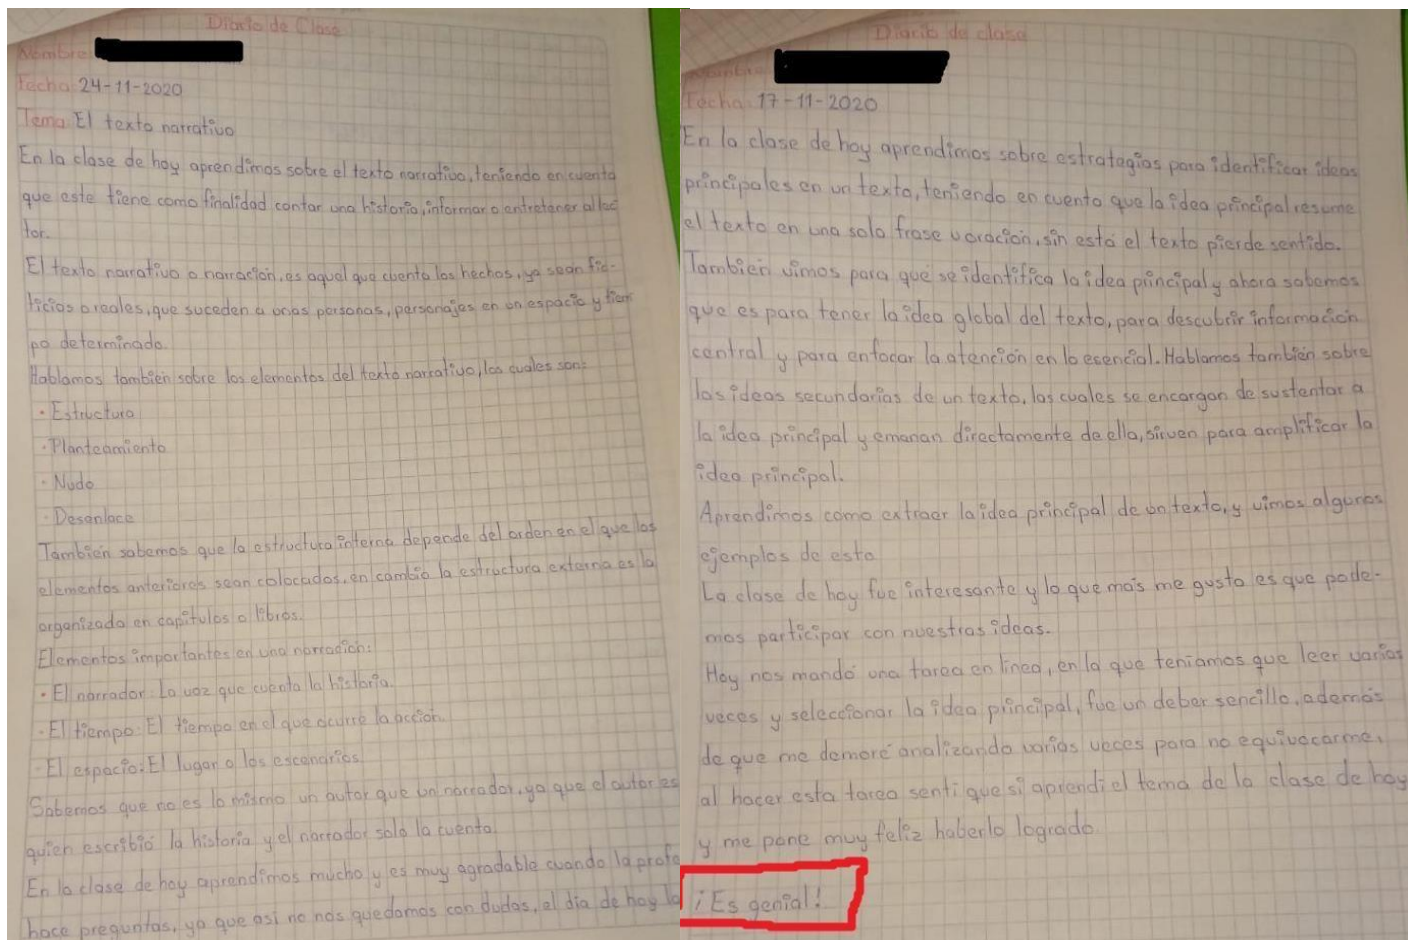 Diario de Clase
Nombre:
Fecha: 24-11-2020
Tema: El texto narrativo
En la clase de hoy aprendimos sobre el texto narrativo, teniendo en cuenta
que este tiene como finalidad contar una historia, informar o entretener al lec
tor.
El texto narrativo o narración, es aquel que cuenta los hechos, ya sean fic-
ticios o reales, que suceden a unas personas, personajes en un espacio y tiem
po determinado.
Hablamos también sobre los elementos del texto narrativo, los cuales son:
· Estructura
· Planteamiento
· Nudo
· Desenlace
También sabemos que la estructura interna depende del orden en el que los
elementos anteriores sean colocados, en cambio la estructura externa es la
organizada en capítulos o libros.
Elementos importantes en una narración:
· El narrador: La voz que cuenta la historia.
· El tiempo: El tiempo en el que ocurre la acción.
· El espacio: El lugar o los escenarios.
Sabemos que no es lo mismo un autor que un narrador, ya que el autor es
quien escribió la historia y el narrador solo la cuenta.
En la clase de hoy aprendimos mucho y es muy agradable cuando la profe
hace preguntas, ya que asi no nos quedamos con dudas, el día de hoy la
Diario de clase
Nombre:
Fecha: 17-11-2020
En la clase de hoy aprendimos sobre estratagias para identificar ideas
principales en un texto, teniendo en cuenta que la idea principal resume
el texto en una sola frase u oración, sin esta el texto pierde sentido.
También vimos para qué se identifica la idea principal y ahora sabemos
que es para tener la idea global del texto, para descubrir información
central y para enfocar la atención en lo esencial. Hablamos también sobre
las ideas secundarias de un texto, las cuales se encargan de sustentar a
la idea principal y emanan directamente de ella, sirven para amplificar la
idea principal.
Aprendimos como extraer la idea principal de un texto, y vimos algunos
ejemplos de esto
La clase de hoy fue interesante y lo que más me gusto es que pode-
mos participar con nuestras ideas.
Hoy nos mandó una tarea en línea, en la que teníamos que leer varias
veces y seleccionar la idea principal, fue un deber sencillo, además
de que me demoré analizando varias veces para no equivocarme,
al hacer esta tarea senti que si aprendi el tema de la clase de hoy
y me pone muy feliz haberlo logrado.
¡Es genial!